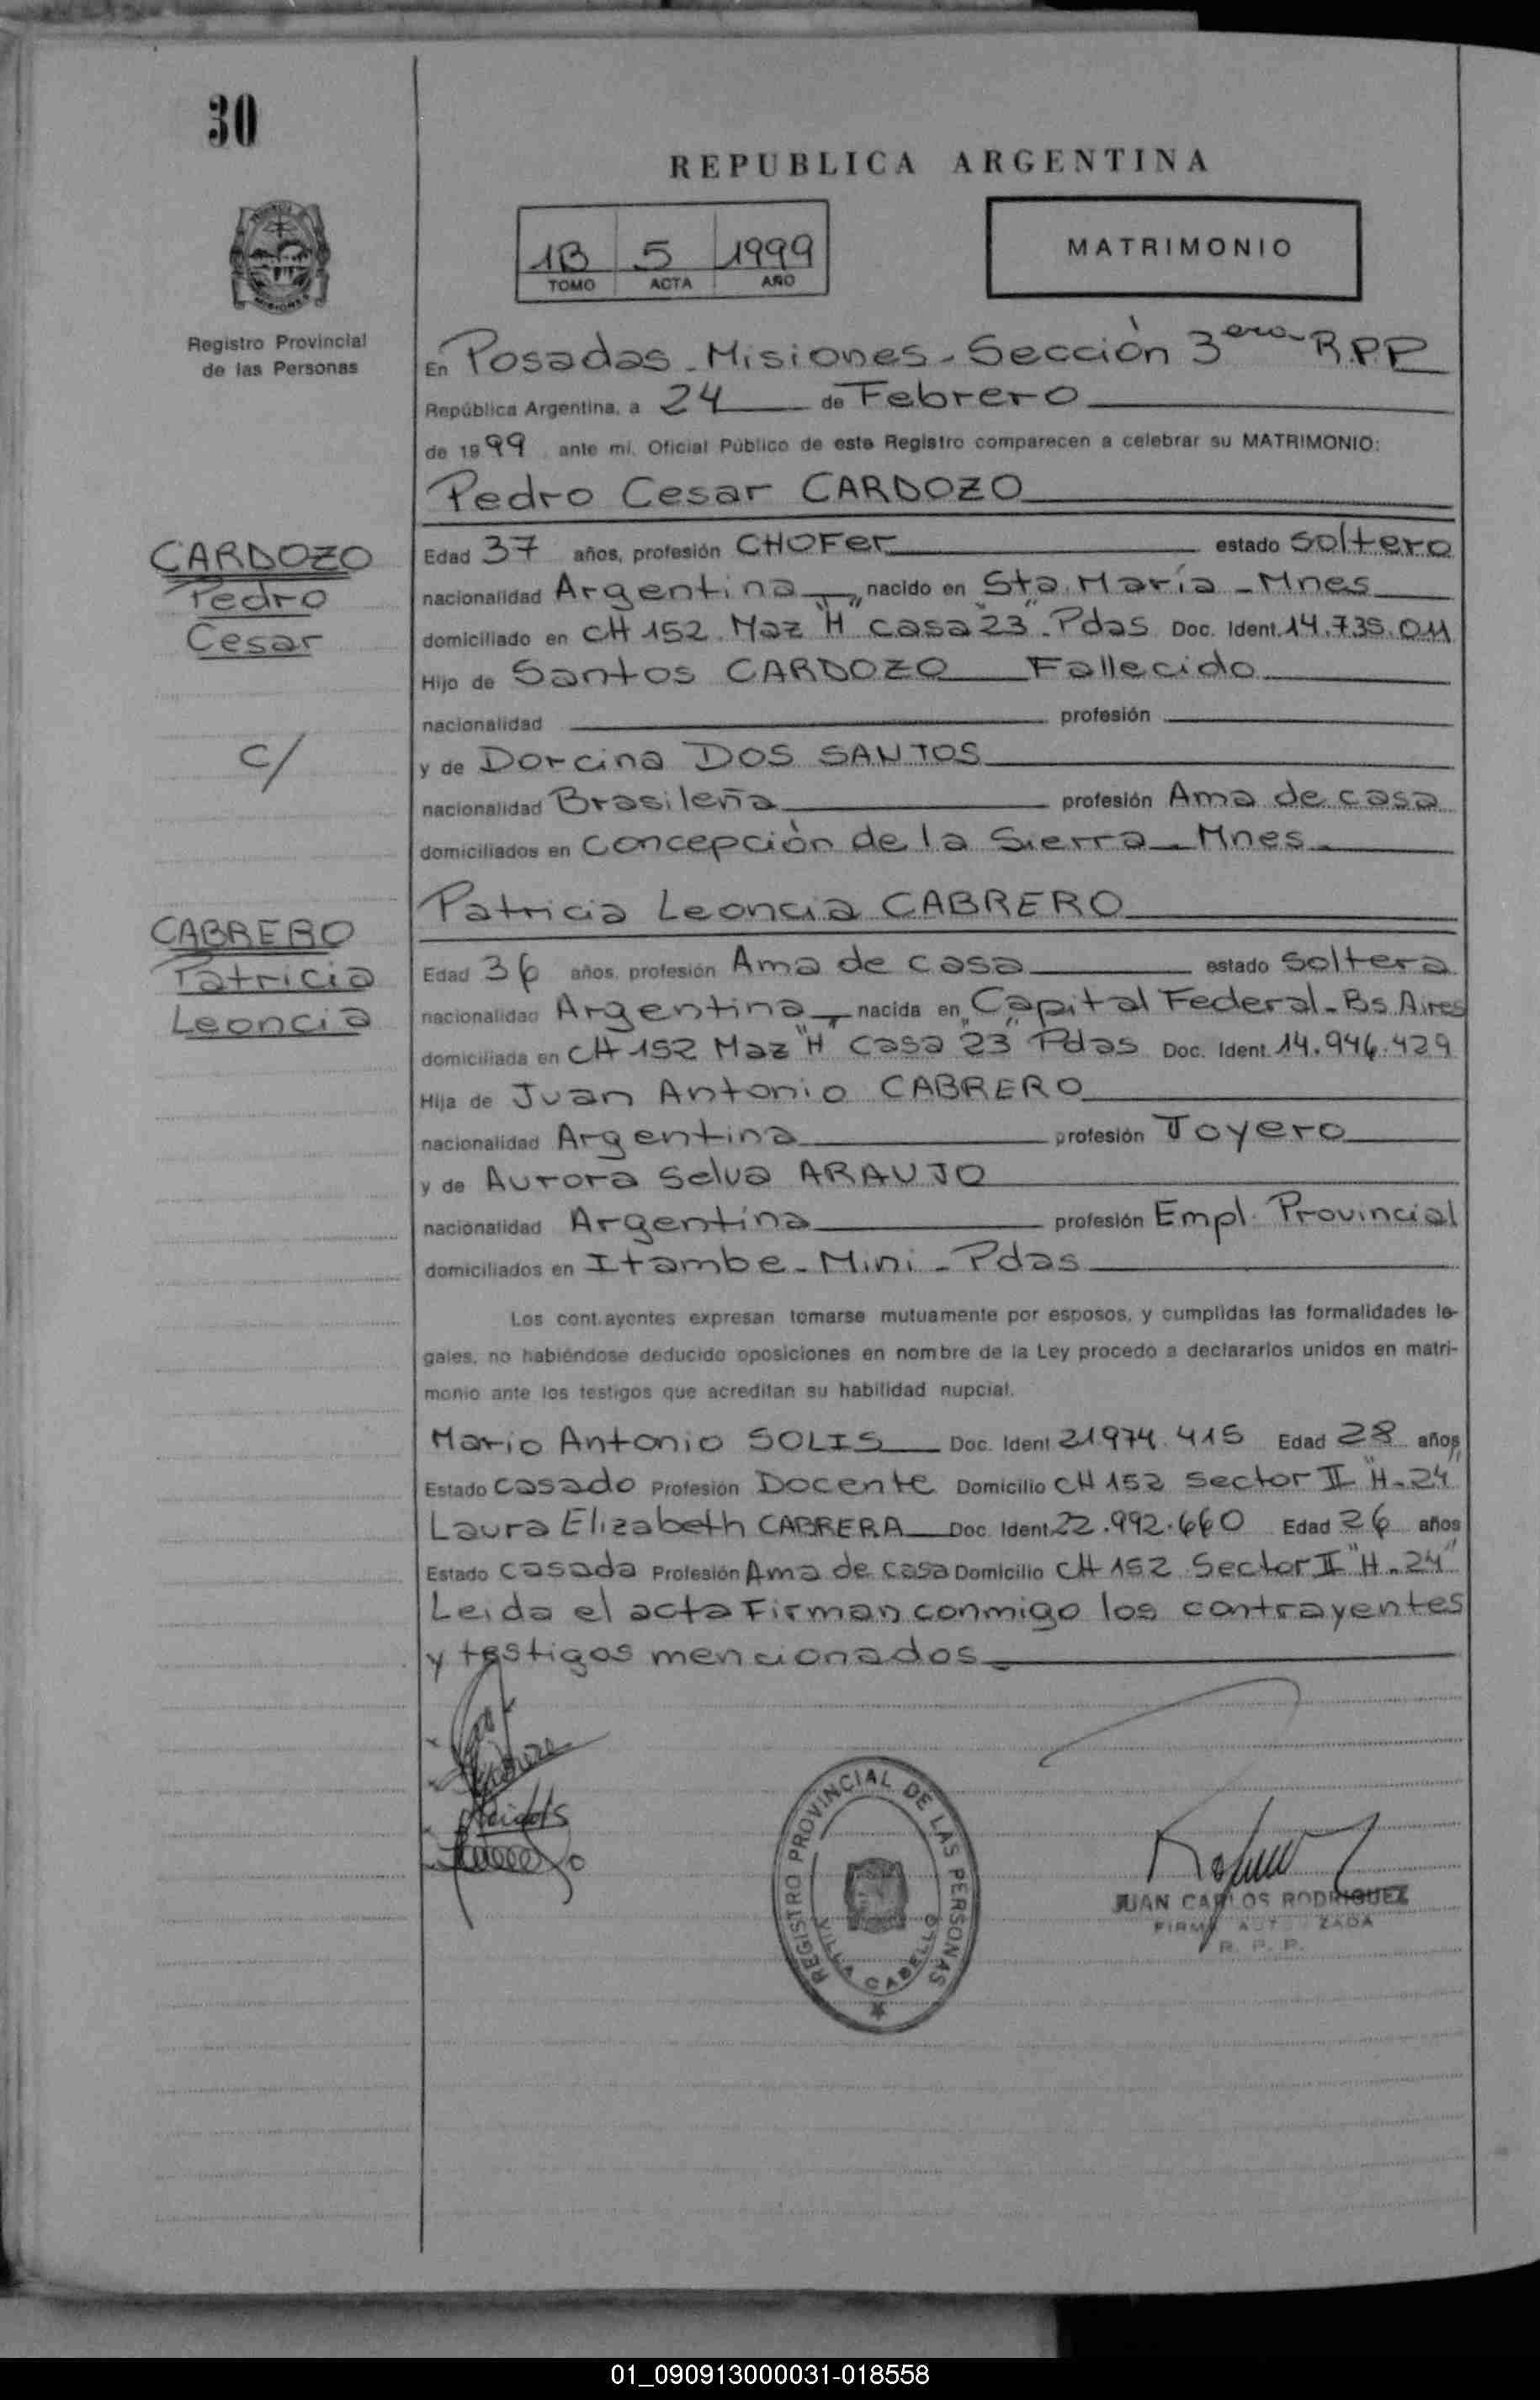 30
REPUBLICA ARGENTINA
1B 5 1999
TOMO ACTA AÑO
MATRIMONIO
Registro Provincial
de las Personas
En Posadas - Misiones - Sección 3era R.P.P
República Argentina, a 24 de Febrero
de 1999 ante mi, Oficial Público de este Registro comparecen a celebrar su MATRIMONIO:
Pedro Cesar CARDOZO
CARDOZO
Pedro
Cesar
Edad 37 años, profesión CHOFER estado soltero
nacionalidad Argentina nacido en Sta. María - Mnes
domiciliado en CH 152 Maz "H" casa "23" - Pdas Doc. Ident. 14.735.011
Hijo de Santos CARDOZO Fallecido
nacionalidad profesión
c/
y de Dorcina DOS SANTOS
nacionalidad Brasileña profesión Ama de casa
domiciliados en Concepción de la Sierra - Mnes.
Patricia Leoncia CABRERO
CABRERO
Patricia
Leoncia
Edad 36 años, profesión Ama de casa estado soltera
nacionalidad Argentina nacida en Capital Federal - Bs. Aires
domiciliada en CH 152 Maz "H" casa "23" Pdas Doc. Ident. 14.946.429
Hija de Juan Antonio CABRERO
nacionalidad Argentina profesión Joyero
y de Aurora Selva ARAUJO
nacionalidad Argentina profesión Empl. Provincial
domiciliados en Itambe - Mini - Pdas
Los contrayentes expresan tomarse mutuamente por esposos, y cumplidas las formalidades le-
gales, no habiéndose deducido oposiciones en nombre de la Ley procedo a declararlos unidos en matri-
monio ante los testigos que acreditan su habilidad nupcial.
Mario Antonio SOLIS Doc. Ident 21974.415 Edad 28 años
Estado casado Profesión Docente Domicilio CH 152 Sector II "H-24"
Laura Elizabeth CABRERA Doc. Ident. 22.992.660 Edad 26 años
Estado casada Profesión Ama de casa Domicilio CH 152 Sector II "H-24"
Leida el acta Firman conmigo los contrayentes
y testigos mencionados
REGISTRO PROVINCIAL DE LAS PERSONAS
VILLA CABELLO
JUAN CARLOS RODRIGUEZ
FIRMA AUTORIZADA
R. P. P.
01_090913000031-018558